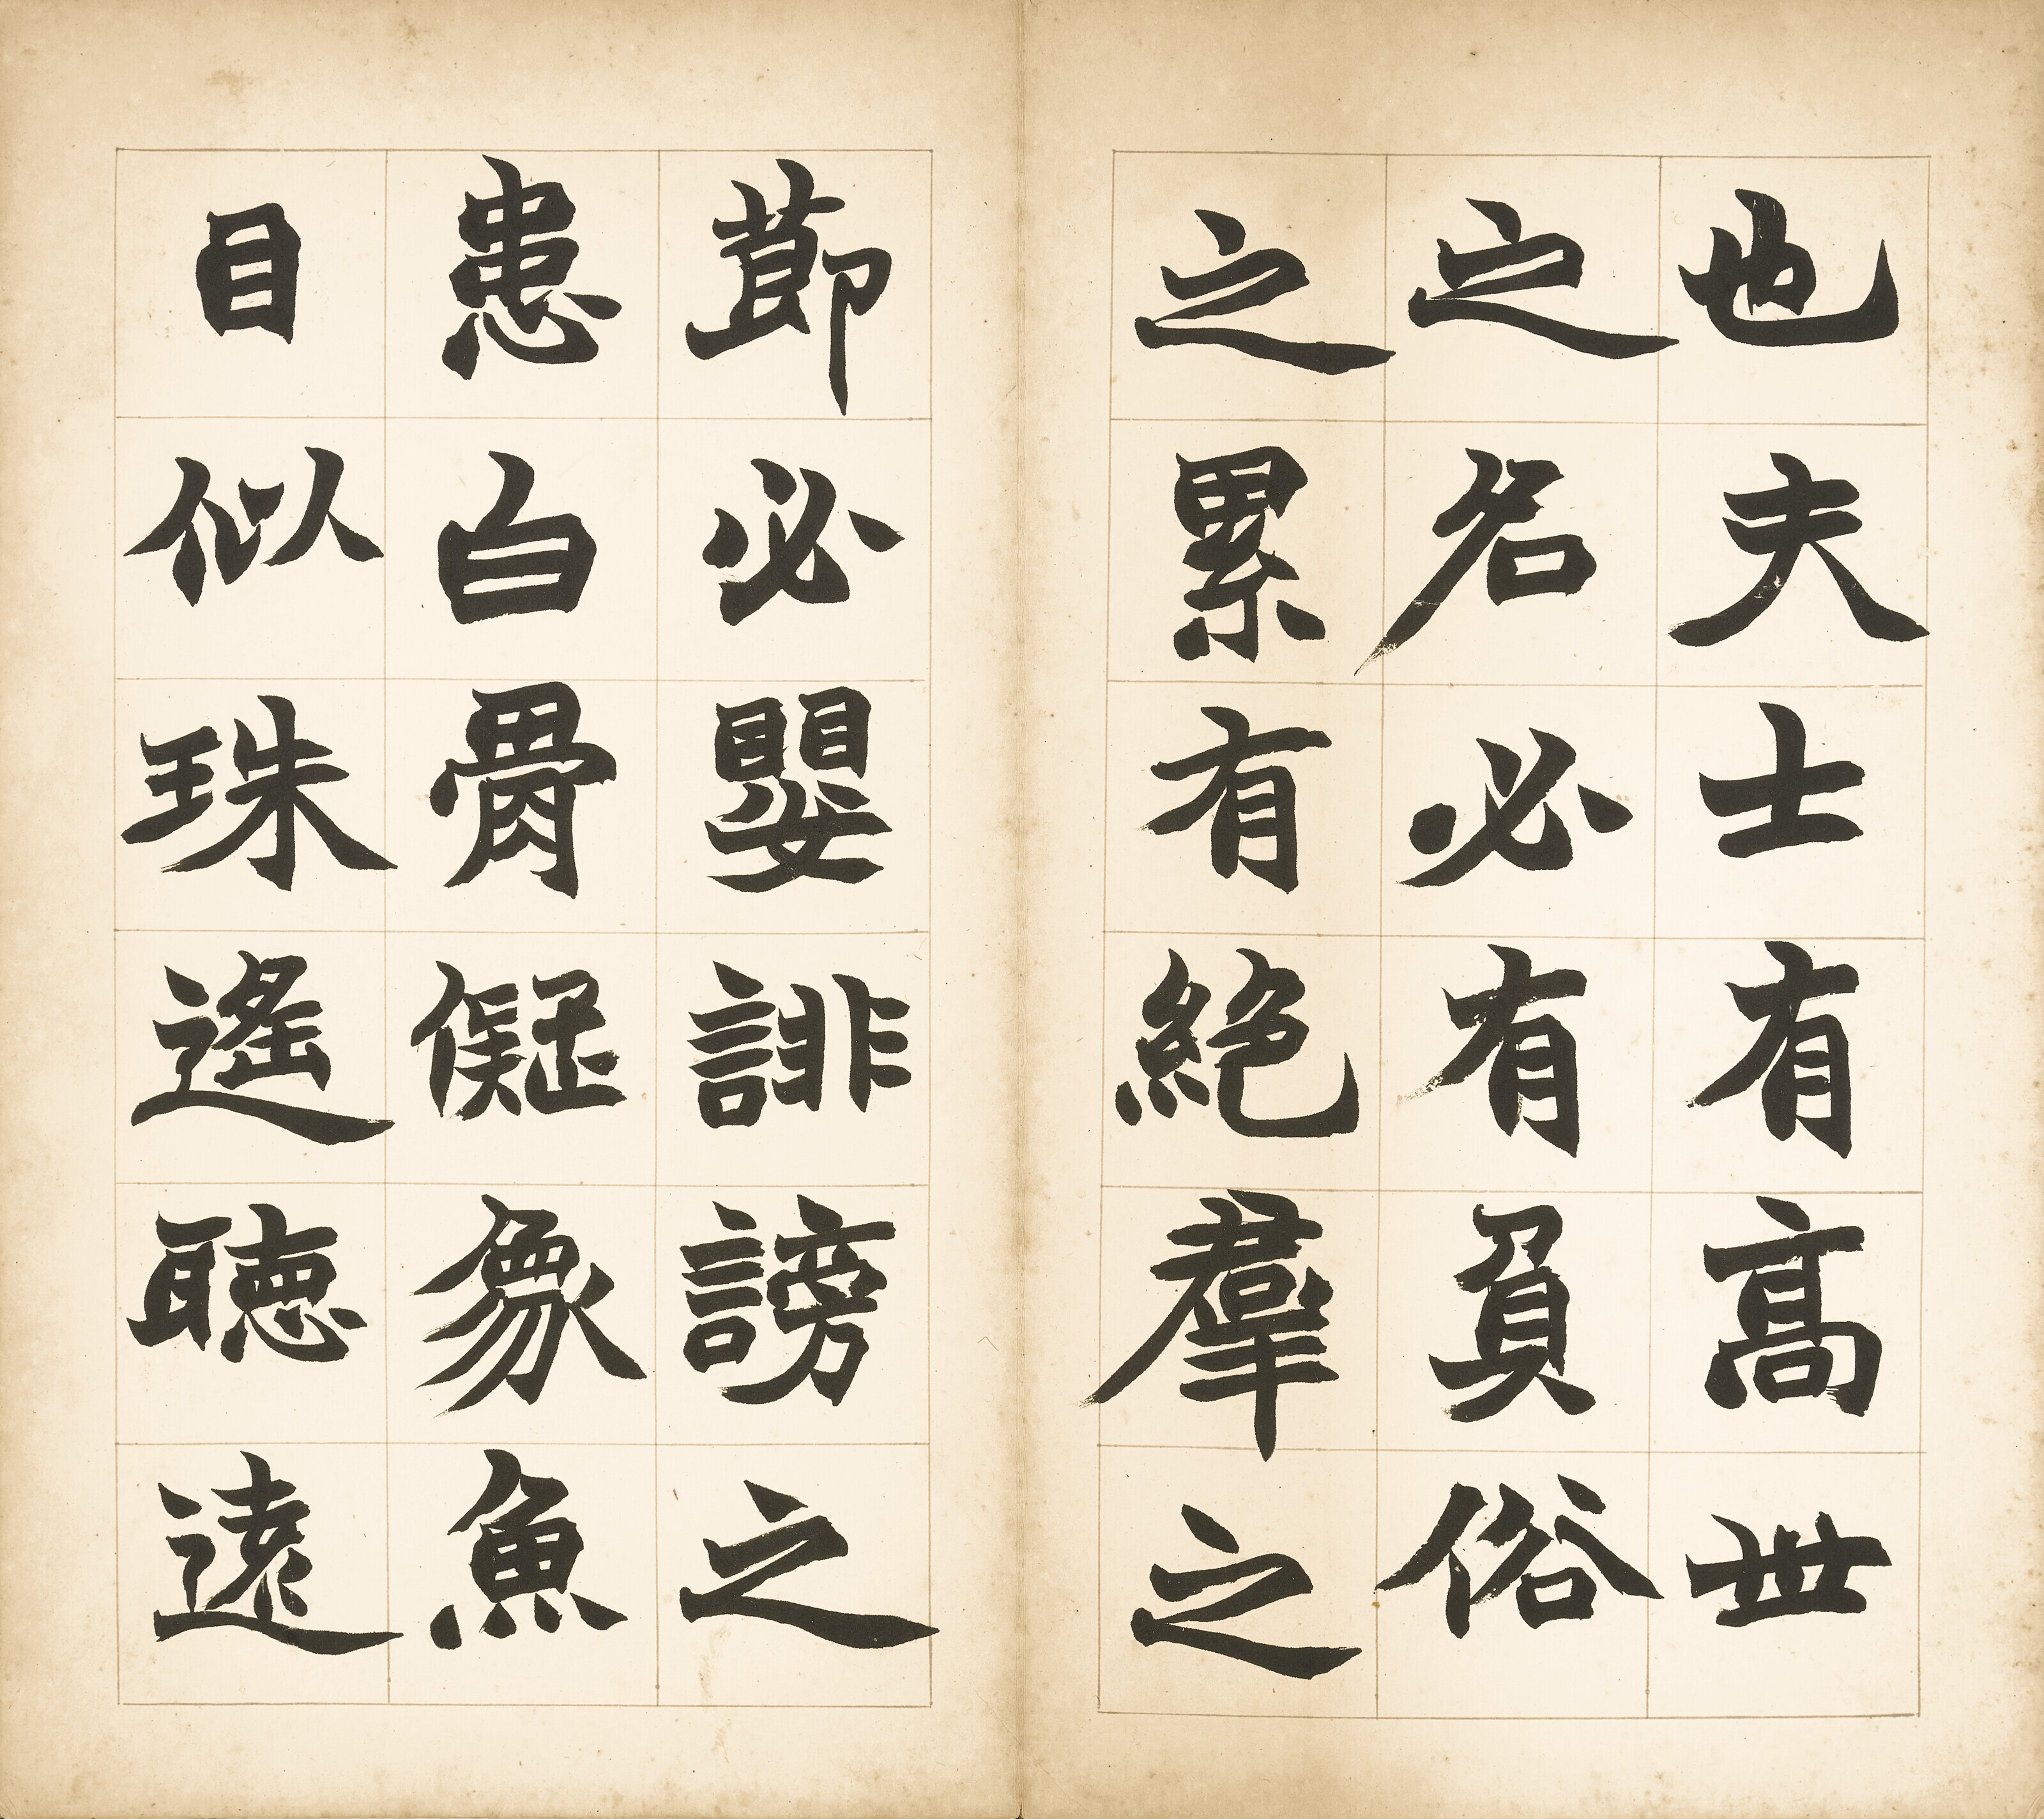 也夫士有高世
之名必有負俗
之累有絕羣之
節必嬰誹謗之
患白骨儗象魚
目似珠遙聽遠